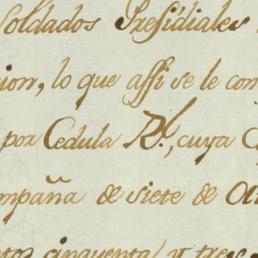 Soldados Presidiales
ion, lo que assi se le con
por Cedula Rl., cuya
mpañia de siete de
cinquenta y tres